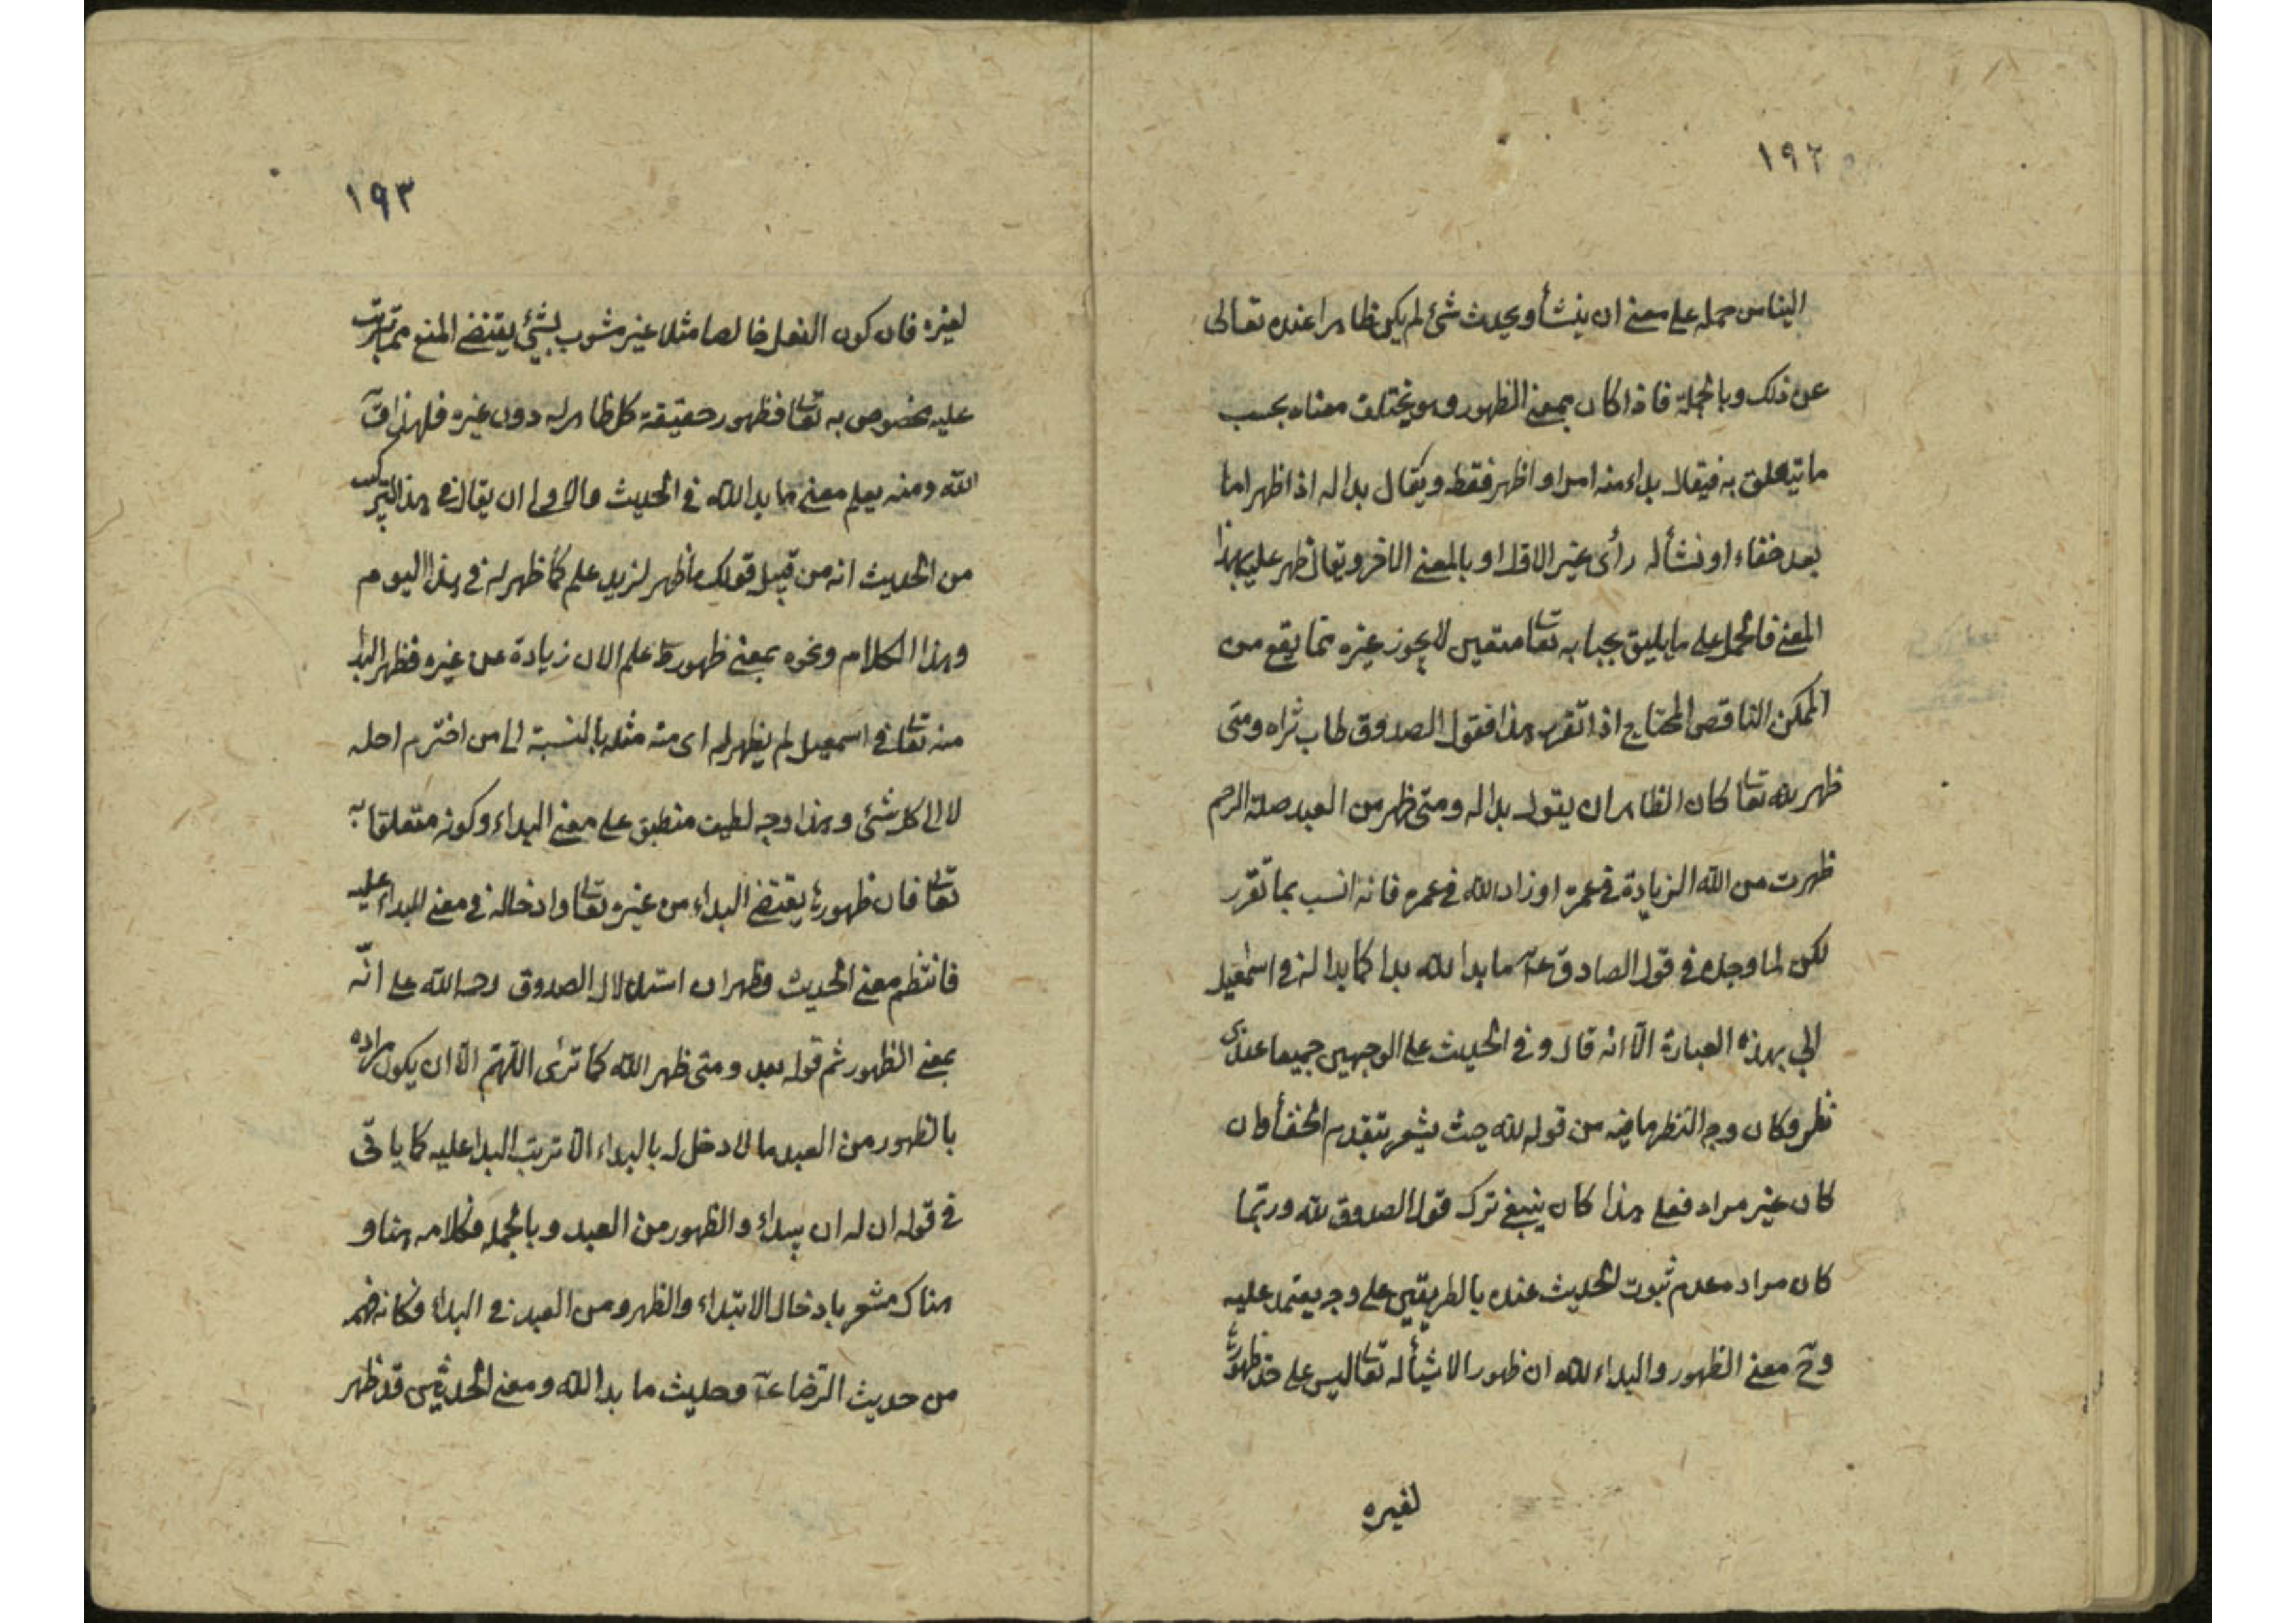 ١٩٢
الينا من حمله على معنى ان ينشأ ويحدث شئ لم يكن ظاهرا عنده تعالى
عن ذلك وبالجملة فاذا كان بمعنى الظهور وهو يختلف معناه بحسب
ما يتعلق به فيقال بداء منه امر او اظهر فقط ويقال بدا له اذ اظهر اما
بعد خفاء او نشأ له رأى غير الاول او بالمعنى الاخر ويقال ظهر عليه بهذا
المعنى فالحمل على ما يليق بجنابه تعا متعين لا يجوز غيره مما يقع من
الممكن الناقص المحتاج اذا تقرر هذا فقول الصدوق طاب ثراه ومتى
ظهر لله تعا كان الظاهر ان يقول بدا له ومتى ظهر من العبد صلة الرحم
ظهرت من الله الزيادة في عمره او زاد الله في عمره فانه انسب بما تقرر
لكن لما وجده في قول الصادق عة ما بدا لله بدا كما بدا له في اسمعيل
الي بهذه العبارة الا انه قال وفي الحديث على الوجهين جميعا عندي
نظر وكان وجه النظر ما فيه من قوله لله حيث يشعر بتقدم الخفأ وان
كان غير مراد فعلى هذا كان ينبغي ترك قول الصدوق لله وربما
كان مراد معدم ثبوت الحديث عنده بالطريقين على وجه يعتمد عليه
وح معنى الظهور والبداء لله ان ظهور الاشيأ له تعا ليس على حد ظهورها
لغيره
١٩٣
لغيره فان كون الفعل خالصا مثلا غير مشوب بشئ يقتضى المنع مما يترتب
عليه مخصوص به تعا فظهور حقيقة كل ظاهر له دون غيره فلهذا
الله ومنه يعلم معنى ما بدا لله في الحديث والاولى ان يقال في هذا التركيب
من الحديث انه من قبيل قولك ما ظهر لزيد علم كما ظهر له في هذا اليوم
وهذا الكلام ونحوه بمعنى ظهور علم الان زيادة عن غيره فظهر البدأ
منه تعا في اسمعيل لم يظهر له اى منه مثله بالنسبة الى من اخترم اجله
لا الى كل شئ وهذا وجه لطيف منطبق على معنى البداء وكونه متعلقا به
تعا فان ظهورها يقتضى البداء من غيره تعا وادخاله في معنى البداء عليه
فانتظم معنى الحديث وظهر ان استدلال الصدوق رحمه الله على انه
بمعنى الظهور ثم قوله بعد ومتى ظهر الله كما ترى اللهم الا ان يكون مراده
بالظهور من العبد ما لا دخل له بالبداء الا ترتب البدا عليه كما ياتى
في قوله ان له ان يبداء والظهور من العبد وبالجمله فكلامه هنا و
هناك مشعر بادخال الابتداء والظهور من العبد في البداء فكانه فهم
من حديث الرضا عة وحديث ما بدا لله ومعنى الحديثين قد ظهر